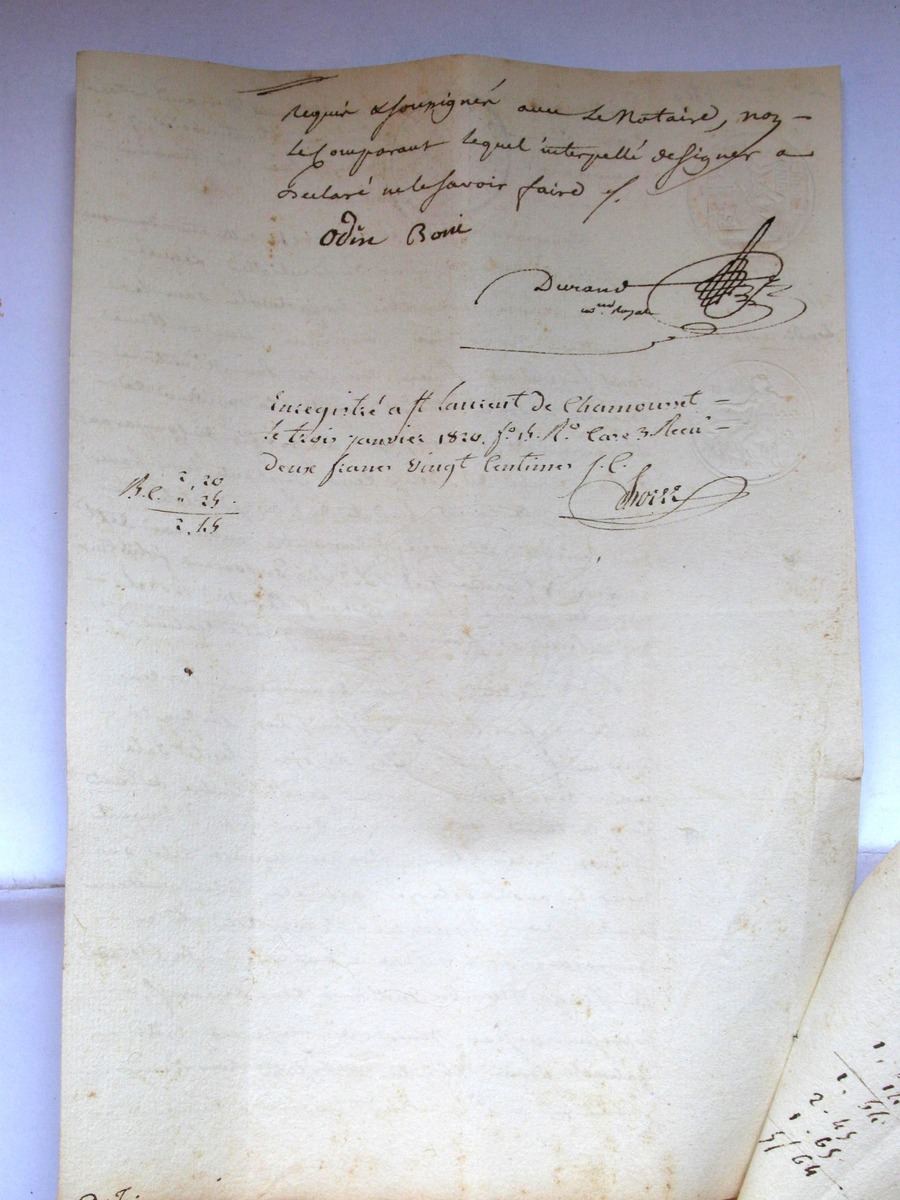 requis & soussignés avec le Notaire, non
le Comparant lequel interpellé de signer a
Déclaré ne le savoir faire /.
Odin Boni
Durand
not. Royal
Enregistré a St Laurent de Chamousset
le trois janvier 1820. fo. R.o Case 3 Recu
deux francs vingt Centimes
2,20
25
2,45
1.
2.45
1.65